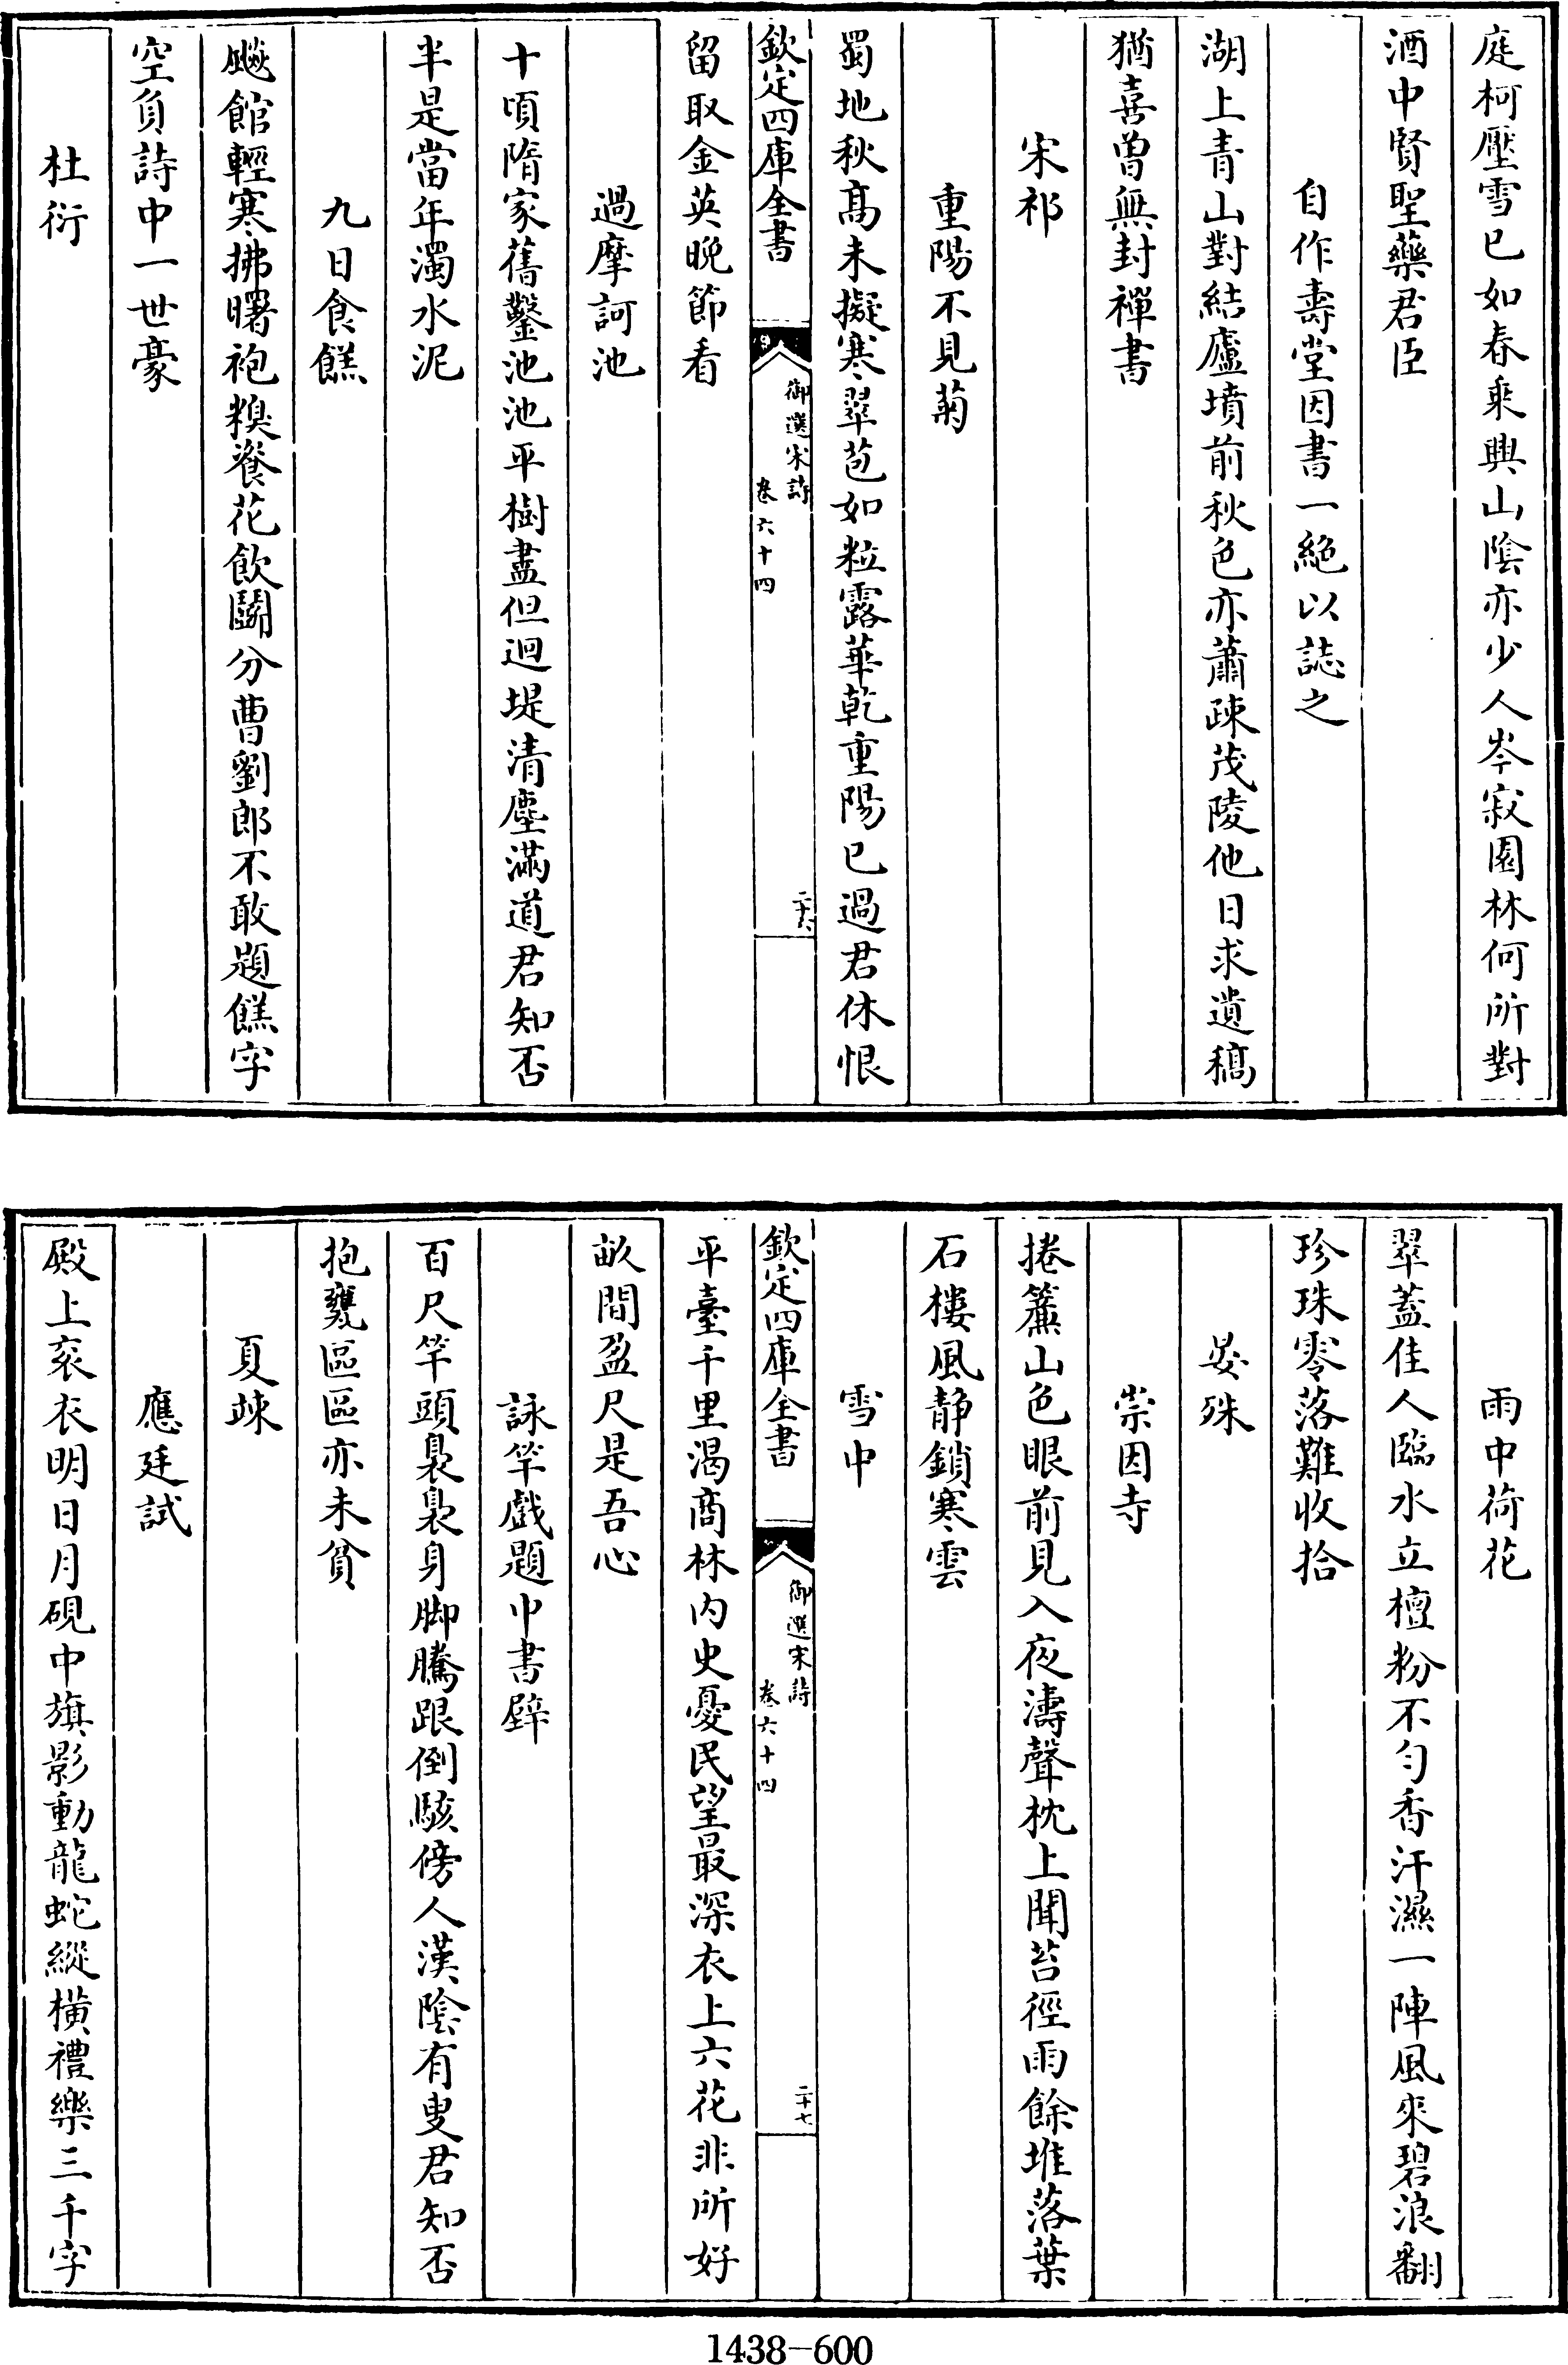 庭柯壓雪已如春乘興山陰亦少人岑寂園林何所對
酒中賢聖藥君臣
自作壽堂因書一絶以誌之
湖上青山對結廬墳前秋色亦蕭疎茂陵他日求遺稿
猶喜曾無封禪書
宋祁
重陽不見菊
蜀地秋高未擬寒翠苞如粒露華乾重陽已過君休恨
欽定四庫全書
御選宋詩
卷六十四
二十六
留取金英晩節看
過摩訶池
十頃隋家舊鑿池池平樹盡但迴堤清塵滿道君知否
半是當年濁水泥
九日食餻
飈館輕寒拂曙袍糗餈花飲鬭分曹劉郎不敢題餻字
空負詩中一世豪
杜衍
雨中荷花
翠蓋佳人臨水立檀粉不匀香汗濕一陣風來碧浪翻
珍珠零落難收拾
晏殊
崇因寺
捲簾山色眼前見入夜濤聲枕上聞苔徑雨餘堆落葉
石樓風静鎖寒雲
雪中
欽定四庫全書
御選宋詩
卷六十四
二十七
平臺千里渴商林内史憂民望最深衣上六花非所好
畝間盈尺是吾心
詠竿戲題巾書壁
百尺竿頭裊裊身脚騰跟倒駭傍人漢陰有叟君知否
抱甕區區亦未貧
夏竦
應廷試
殿上衮衣明日月硯中旗影動龍蛇縱横禮樂三千字
1438-600